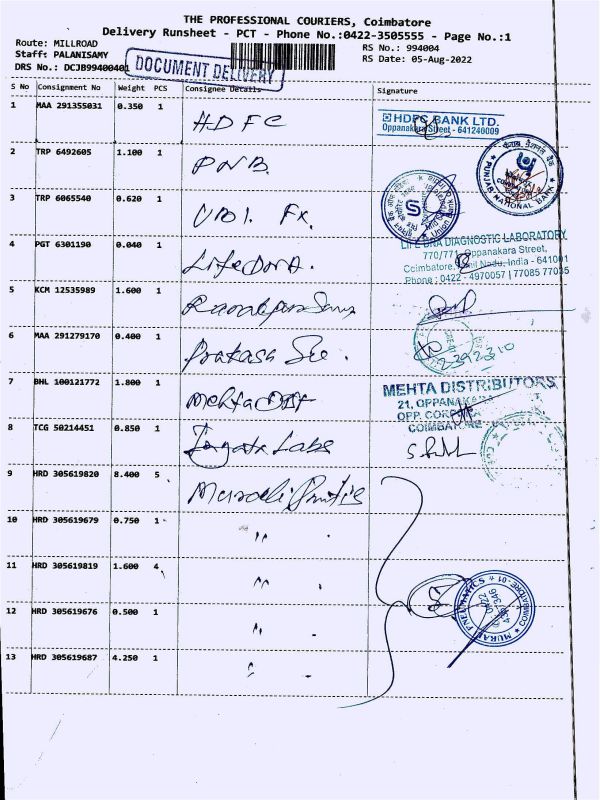 THE PROFESSIONAL COURIERS, Coimbatore
Delivery Runsheet - PCT - Phone No.:0422-3505555 - Page No.:1
Route: MILLROAD
Staff: PALANISAMY
DRS No.: DCJB99400401
DOCUMENT DELIVERY
RS No.: 994004
RS Date: 05-Aug-2022
S No Consignment No Weight PCS Consignee Details Signature
1 MAA 291355031 0.350 1 HDFC
HDFC BANK LTD.
Oppanakara Street - 641240009
2 TRP 6492605 1.100 1 PNB.
PUNJAB NATIONAL BANK
3 TRP 6065540 0.620 1 UBI. Fx.
4 PGT 6301190 0.040 1 Lifedora.
DIAGNOSTIC LABORATORY
770/771, Oppanakara Street,
Coimbatore, Tamil Nadu, India - 641001
Phone : 0422 - 4970057 | 77085 77035
5 KCM 12535989 1.600 1
6 MAA 291279170 0.400 1 Prakash
2392310
7 BHL 100121772 1.800 1 Mehta
MEHTA DISTRIBUTORS
21, OPPANAKARA
OPP. CORP
COIMBATORE
8 TCG 50214451 0.850 1 Labs
9 HRD 305619820 8.400 5
10 HRD 305619679 0.750 1 "
11 HRD 305619819 1.600 4 "
12 HRD 305619676 0.500 1 "
13 HRD 305619687 4.250 1 "
PNEUMATICS * COIMBATORE-01
0422